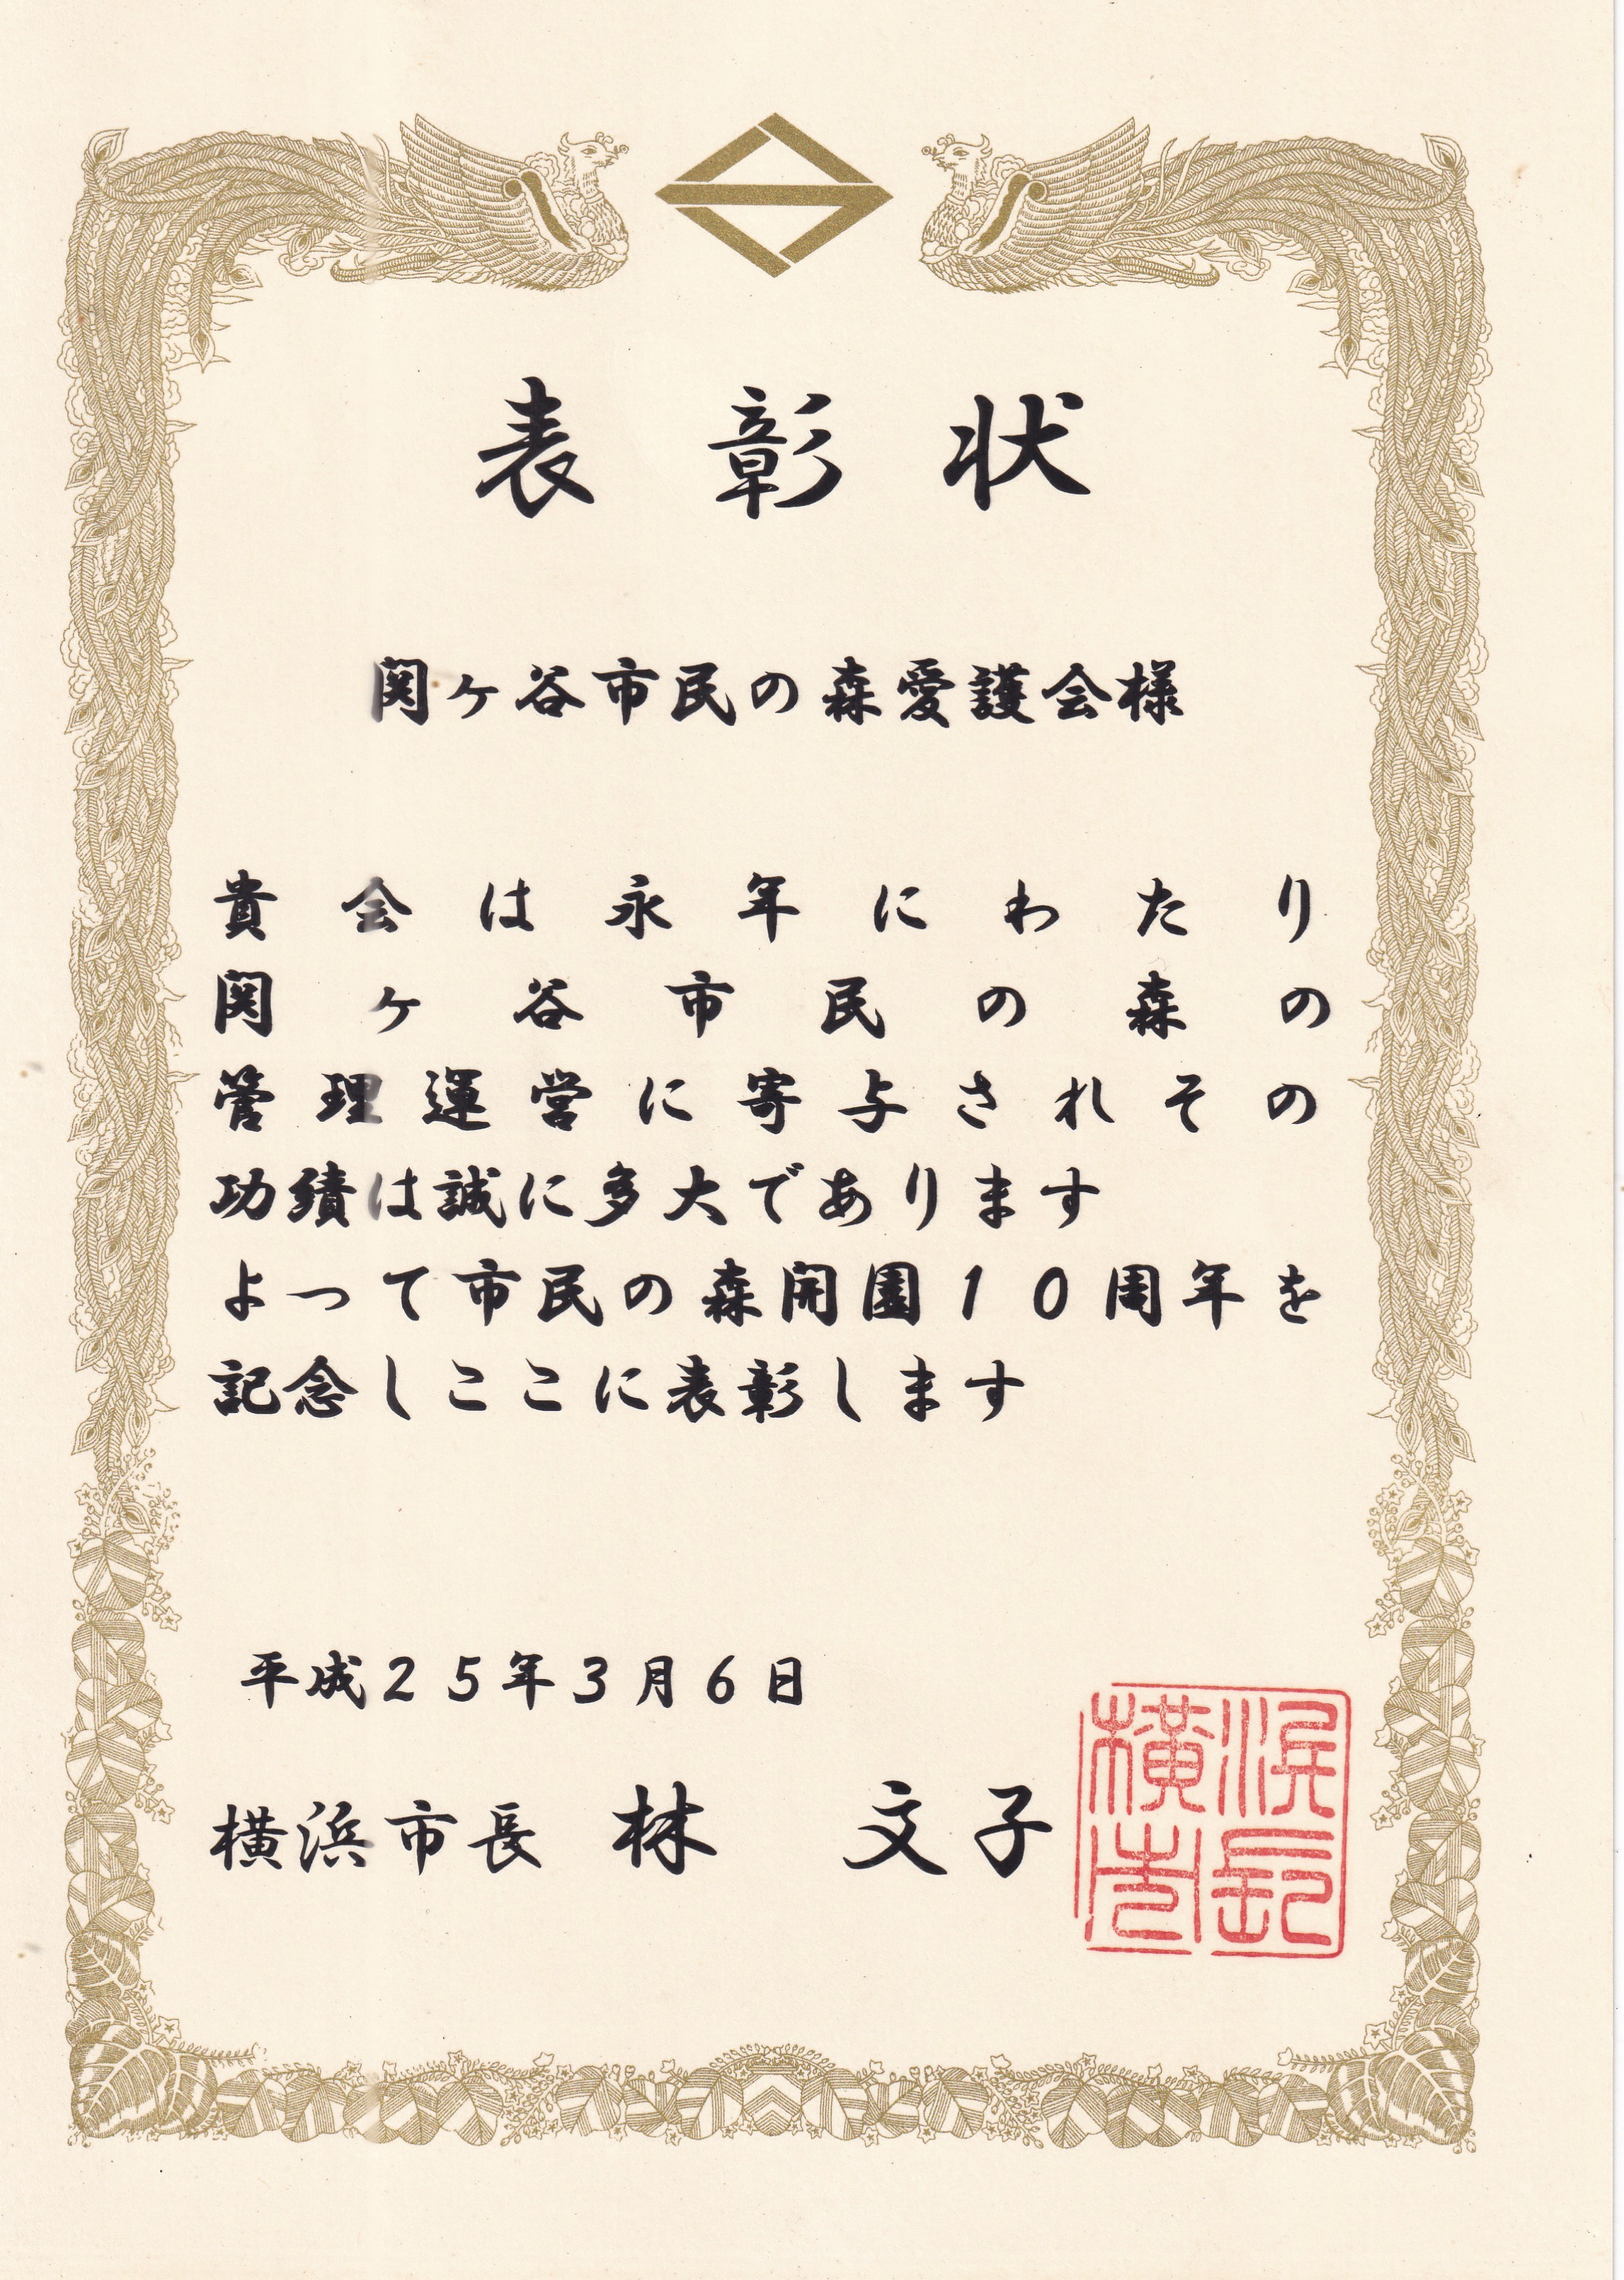 表彰状
関ヶ谷市民の森愛護会様
貴会は永年にわたり
関ヶ谷市民の森の
管理運営に寄与されその
功績は誠に多大であります
よって市民の森開園10周年を
記念しここに表彰します
平成25年3月6日
横浜市長 林 文子
横浜
市長